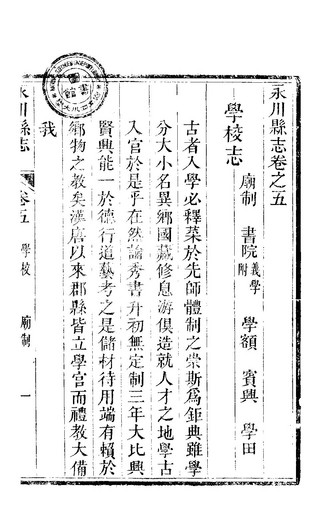 永川縣志卷之五
學校志
廟制 書院 義學附 學額 賓興 學田
古者入學必釋菜於先師體制之崇斯爲鉅典雖學
分大小名異鄉國藏修息游俱造就人才之地學古
入官於是乎在然論秀書升初無定制三年大比興
賢興能一於德行道藝考之是儲材待用端有賴於
鄉物之教矣漢唐以來郡縣皆立學官而禮教大備
我
永川縣志 卷五 學校 廟制 一